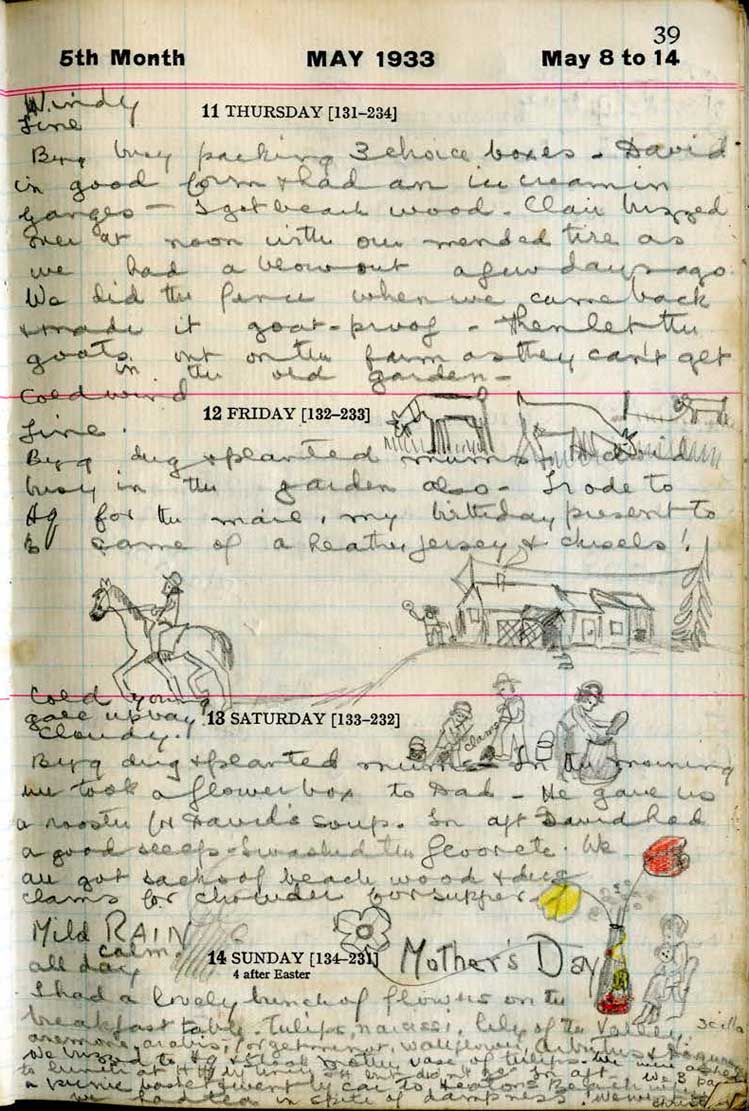 39
5th Month MAY 1933 May 8 to 14
Windy
Fine
11 THURSDAY [131-234]
busy packing 3 choice boxes - David
in good form & had an ice cream in
Ganges - I got beach wood. Clair buzzed
over at noon with our mended tire as
we had a blowout a few days ago.
We did the fence when we came back
& made it goat-proof - then let the
goats out on the farm as they can't get
in the old garden -
Cold wind
Fine.
12 FRIDAY [132-233]
dug & planted mums - David
busy in the garden also - I rode to
Hq for the mail, my birthday present to
B came of a heather jersey & chisels!
Cold
gale up bay!
Cloudy.
13 SATURDAY [133-232]
clams
dug & planted mums - In the morning
we took a flower box to Dad - He gave us
a rooster for David's soup. In aft David had
a good sleep - I washed the floor etc. We
all got sacks of beach wood & dug
clams for chowder for supper -
Mild RAIN
calm.
all day
14 SUNDAY [134-231]
4 after Easter
Mother's Day
I had a lovely bunch of flowers on the
breakfast table. tulips, narcissi, lily of the valley, scilla
anemone, arabis, forgetmenot, wallflower, Arbutus &
We buzzed to Hq & took Mother vase of tulips. We were asked
to lunch at but didn't go. In aft we 3
a picnic basket & went by car to Beach
we had tea in spite of dampness!